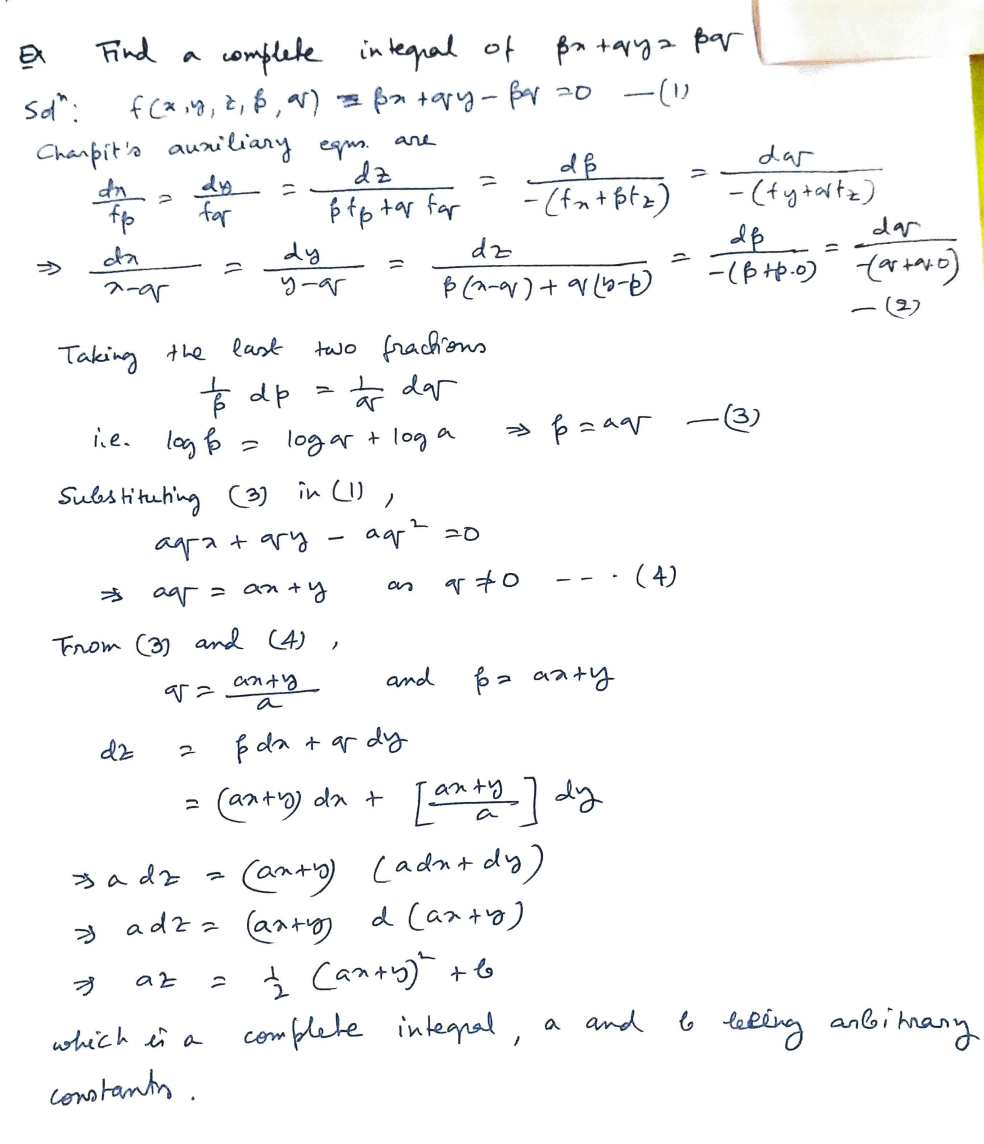 Ex Find a complete integral of px + qy = pq
Solⁿ: f(x, y, z, p, q) ≡ px + qy - pq = 0 —(1)
Charpit's auxiliary eqns. are
dx/fp = dy/fq = dz/(p fp + q fq) = dp/-(fx + p fz) = dq/-(fy + q fz)
⇒ dx/(x-q) = dy/(y-q) = dz/(p(x-q) + q(y-p)) = dp/-(p + p.0) = dq/-(q + q.0)
—(2)
Taking the last two fractions
1/p dp = 1/q dq
i.e. log p = log q + log a ⇒ p = aq —(3)
Substituting (3) in (1),
aqx + qy - aq² = 0
⇒ aq = ax + y as q ≠ 0 - - - . (4)
From (3) and (4),
q = (ax+y)/a and p = ax+y
dz = p dx + q dy
= (ax+y) dx + [(ax+y)/a] dy
⇒ a dz = (ax+y) (adx + dy)
⇒ adz = (ax+y) d(ax+y)
⇒ az = 1/2 (ax+y)² + b
which is a complete integral, a and b being arbitrary
constants.